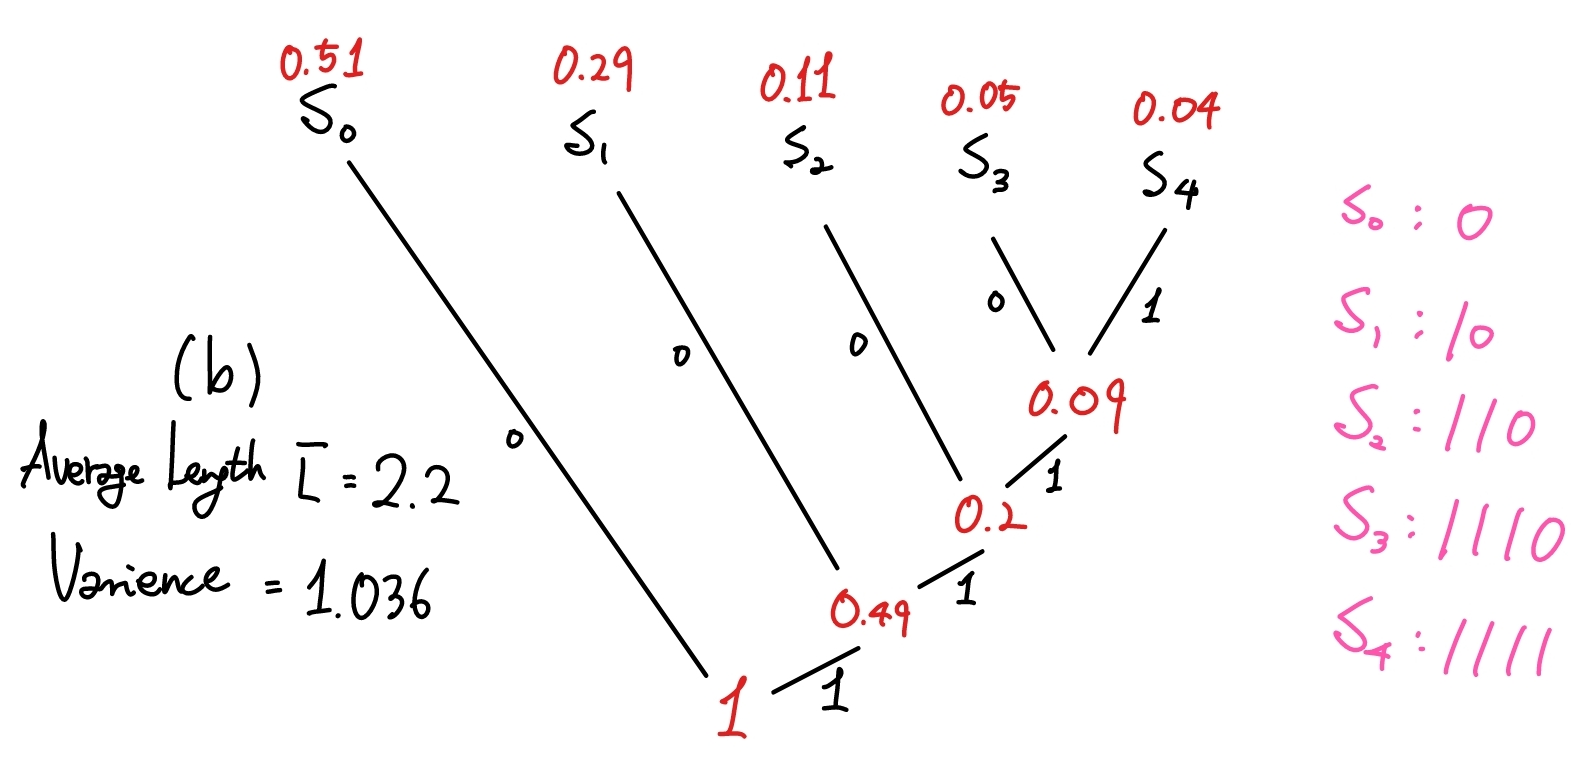 0.51 0.29 0.11 0.05 0.04
S₀ S₁ S₂ S₃ S₄
0 0 0 0 1
0.09
1
0.2
1
0.49
1
1
(b)
Average Length L̅ = 2.2
Varience = 1.036
S₀ : 0
S₁ : 10
S₂ : 110
S₃ : 1110
S₄ : 1111